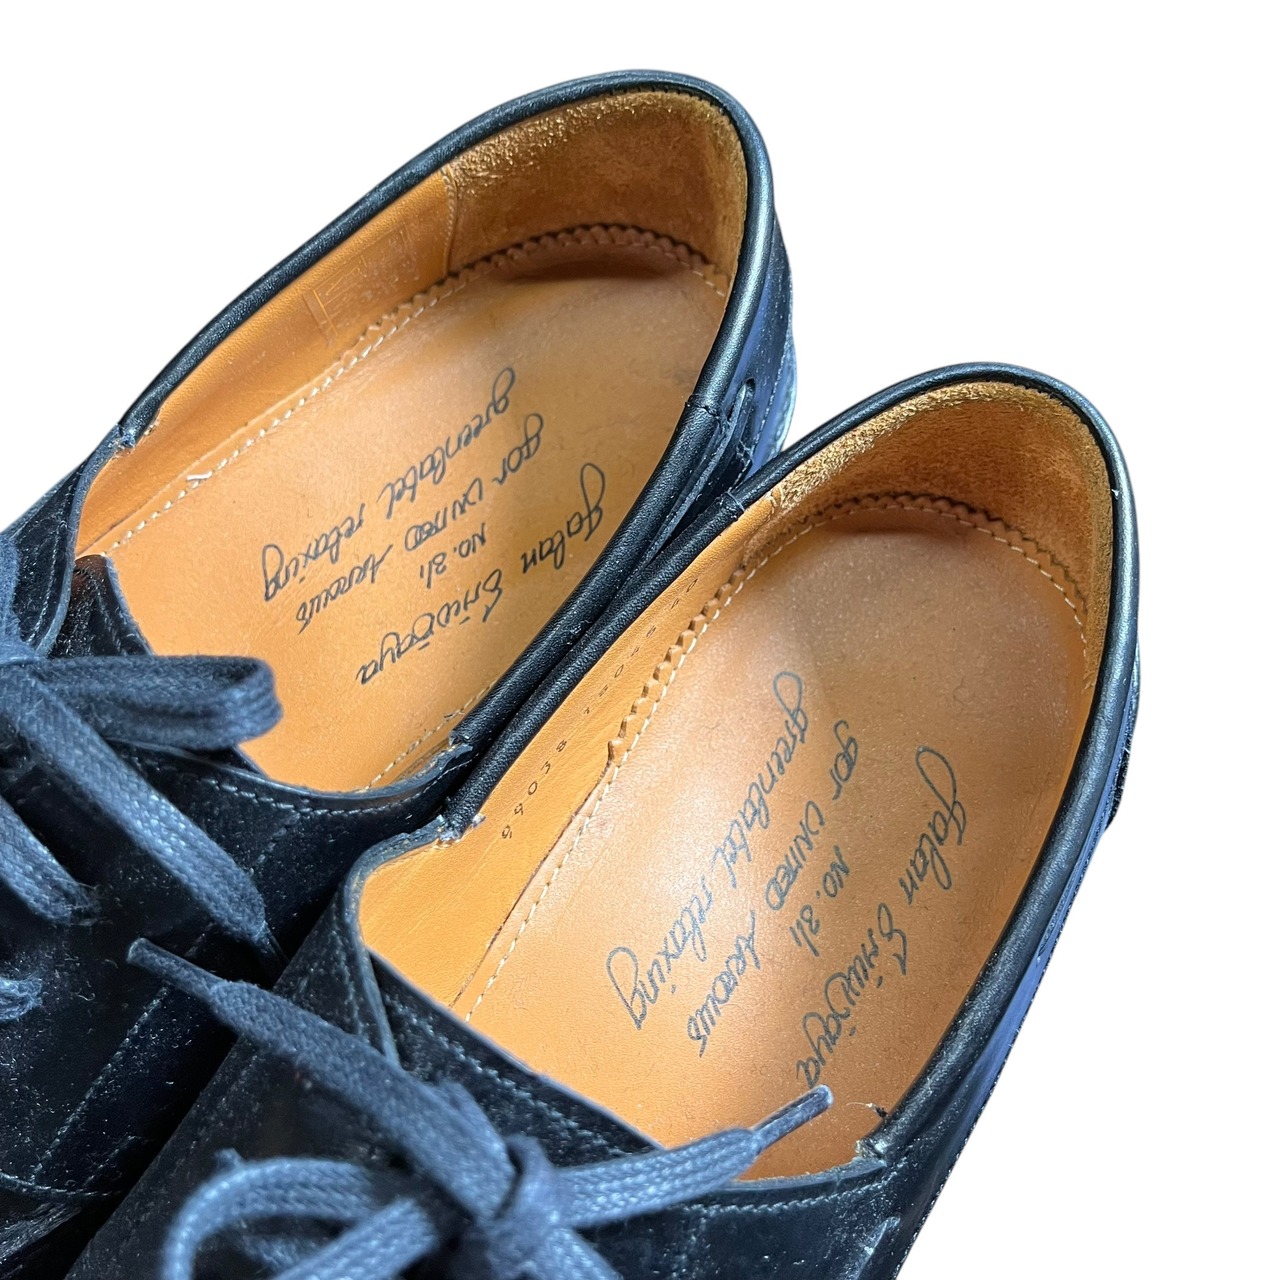 Jalan Sriwijaya
No. 31.
for UNITED ARROWS
green label relaxing
Jalan Sriwijaya
No. 31.
for UNITED ARROWS
green label relaxing